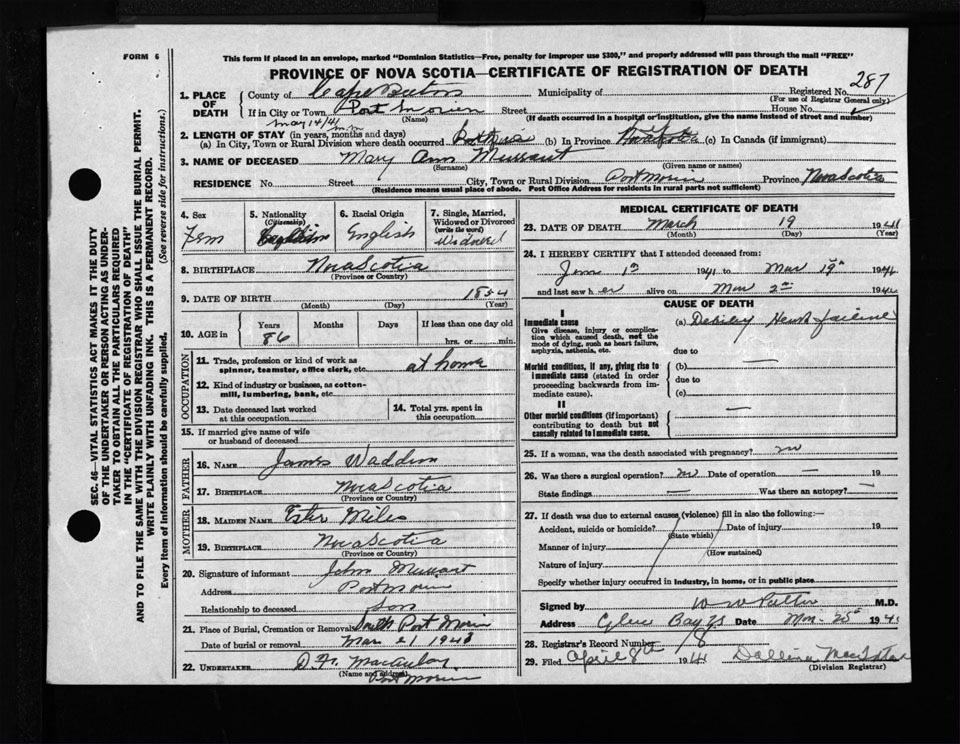 FORM 6
This form if placed in an envelope, marked "Dominion Statistics—Free, penalty for improper use $300," and properly addressed will pass through the mail "FREE"
PROVINCE OF NOVA SCOTIA—CERTIFICATE OF REGISTRATION OF DEATH
287
1. PLACE OF DEATH
County of Cape Breton Municipality of Registered No.
(For use of Registrar General only)
If in City or Town Port Morien Street House No.
(Name) (If death occurred in a hospital or institution, give the name instead of street and number)
2. LENGTH OF STAY (in years, months and days)
(a) In City, Town or Rural Division where death occurred (b) In Province (c) In Canada (if immigrant)
3. NAME OF DECEASED Mary Ann
(Surname) (Given name or names)
RESIDENCE No. Street City, Town or Rural Division Port Morien Province Nova Scotia
(Residence means usual place of abode. Post Office Address for residents in rural parts not sufficient)
SEC. 46—VITAL STATISTICS ACT MAKES IT THE DUTY
OF THE UNDERTAKER OR PERSON ACTING AS UNDER-
TAKER TO OBTAIN ALL THE PARTICULARS REQUIRED
IN THE "CERTIFICATE OF REGISTRATION OF DEATH"
AND TO FILE THE SAME WITH THE DIVISION REGISTRAR WHO SHALL ISSUE THE BURIAL PERMIT.
WRITE PLAINLY WITH UNFADING INK. THIS IS A PERMANENT RECORD.
Every item of information should be carefully supplied. (See reverse side for instructions.)
4. Sex
Fem
5. Nationality
(Citizenship)
6. Racial Origin
English
7. Single, Married,
Widowed or Divorced
(write the word)
Widowed
8. BIRTHPLACE Nova Scotia
(Province or Country)
9. DATE OF BIRTH 1854
(Month) (Day) (Year)
10. AGE in Years Months Days If less than one day old
86 hrs. or min.
OCCUPATION
11. Trade, profession or kind of work as
spinner, teamster, office clerk, etc. at home
12. Kind of industry or business, as cotton-
mill, lumbering, bank, etc.
13. Date deceased last worked
at this occupation
14. Total yrs. spent in
this occupation
15. If married give name of wife
or husband of deceased
FATHER
16. NAME James
17. BIRTHPLACE Nova Scotia
(Province or Country)
MOTHER
18. MAIDEN NAME Ester Miles
19. BIRTHPLACE Nova Scotia
(Province or Country)
20. Signature of informant John
Address Port Morien
Relationship to deceased Son
21. Place of Burial, Cremation or Removal South Port Morien
Date of burial or removal Mar 21
22. UNDERTAKER
(Name and address)
Port Morien
MEDICAL CERTIFICATE OF DEATH
23. DATE OF DEATH March 19 1941
(Month) (Day) (Year)
24. I HEREBY CERTIFY that I attended deceased from:
1941 to Mar 19th 1941
and last saw her alive on 1941
CAUSE OF DEATH
I
Immediate cause
Give disease, injury or complica-
tion which caused death, not the
mode of dying, such as heart failure,
asphyxia, asthenia, etc.
(a) Heart failure
due to
Morbid conditions, if any, giving rise to
immediate cause (stated in order
proceeding backwards from im-
mediate cause).
(b) —
due to
(c)
II
Other morbid conditions (if important)
contributing to death but not
causally related to immediate cause.
—
25. If a woman, was the death associated with pregnancy? no
26. Was there a surgical operation? no Date of operation — 19
State findings — Was there an autopsy? —
27. If death was due to external causes (violence) fill in also the following:—
Accident, suicide or homicide? Date of injury 19
(State which)
Manner of injury
(How sustained)
Nature of injury
Specify whether injury occurred in industry, in home, or in public place
Signed by M.D.
Address Date 25th 1941
28. Registrar's Record Number 8
29. Filed April 8th 1941
(Division Registrar)